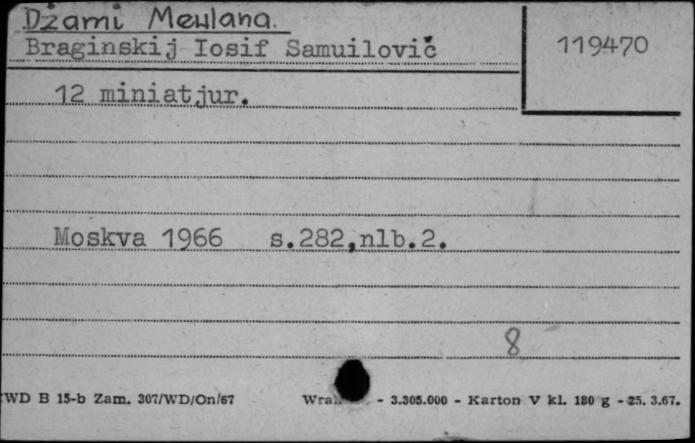 Dżami Mewlana.
Braginskij Iosif Samuilovič
119470
12 miniatjur.
Moskva 1966 s.282,nlb.2.
8
WD B 15-b Zam. 307/WD/On/67 - 3.305.000 - Karton V kl. 180 g - 25. 3.67.